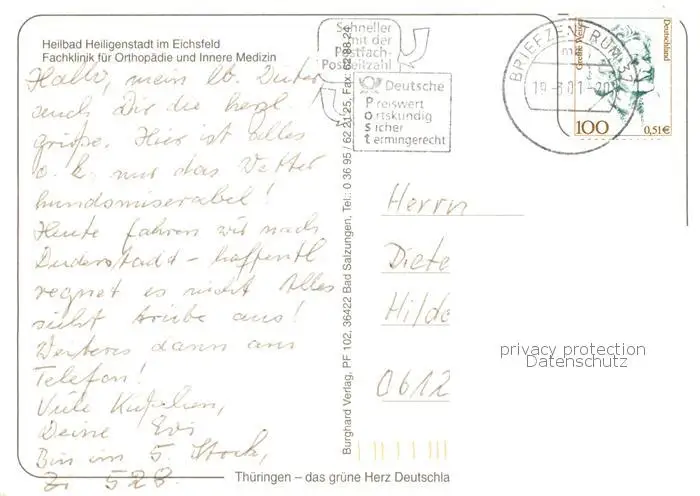 Heilbad Heiligenstadt im Eichsfeld
Fachklinik für Orthopädie und Innere Medizin
Hallo, mein lb. Dieter
auch Dir die herzl.
grüße. Hier ist alles
o. k. nur das Wetter
hundsmiserabel!
Heute fahren wir nach
Duderstadt - hoffentl
regnet es nicht Alles
sieht trübe aus!
Weiteres dann am
Telefon!
Viele Küßchen,
Deine Evi
Bin im 5. Stock,
Zi 528.
Schneller
mit der
Postfach-
Postleitzahl
Deutsche
Preiswert
Ortskundig
Sicher
Termingerecht
BRIEFZENTRUM
19.-6.01.-20
Deutschland
100
0,51€
Burghard Verlag, PF 102, 36422 Bad Salzungen, Tel.: 0 36 95 / 62 21 25, Fax: 62 88 24
Herrn
Diete
Hilde
0612
privacy protection
Datenschutz
Thüringen – das grüne Herz Deutschla